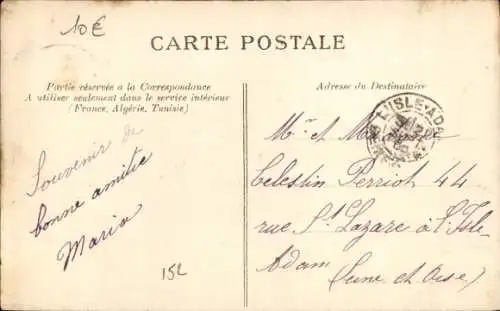 10€
CARTE POSTALE
Partie réservée a la Correspondance
A utiliser seulement dans le service intérieur
(France, Algérie, Tunisie)
Adresse du Destinataire
L'ISLE-ADAM
Souvenir de
bonne amitie
Maria
Mr et Me
Celestin Perriot 44
rue St Lazare à l'Isle
Adam (Seine et Oise)
152